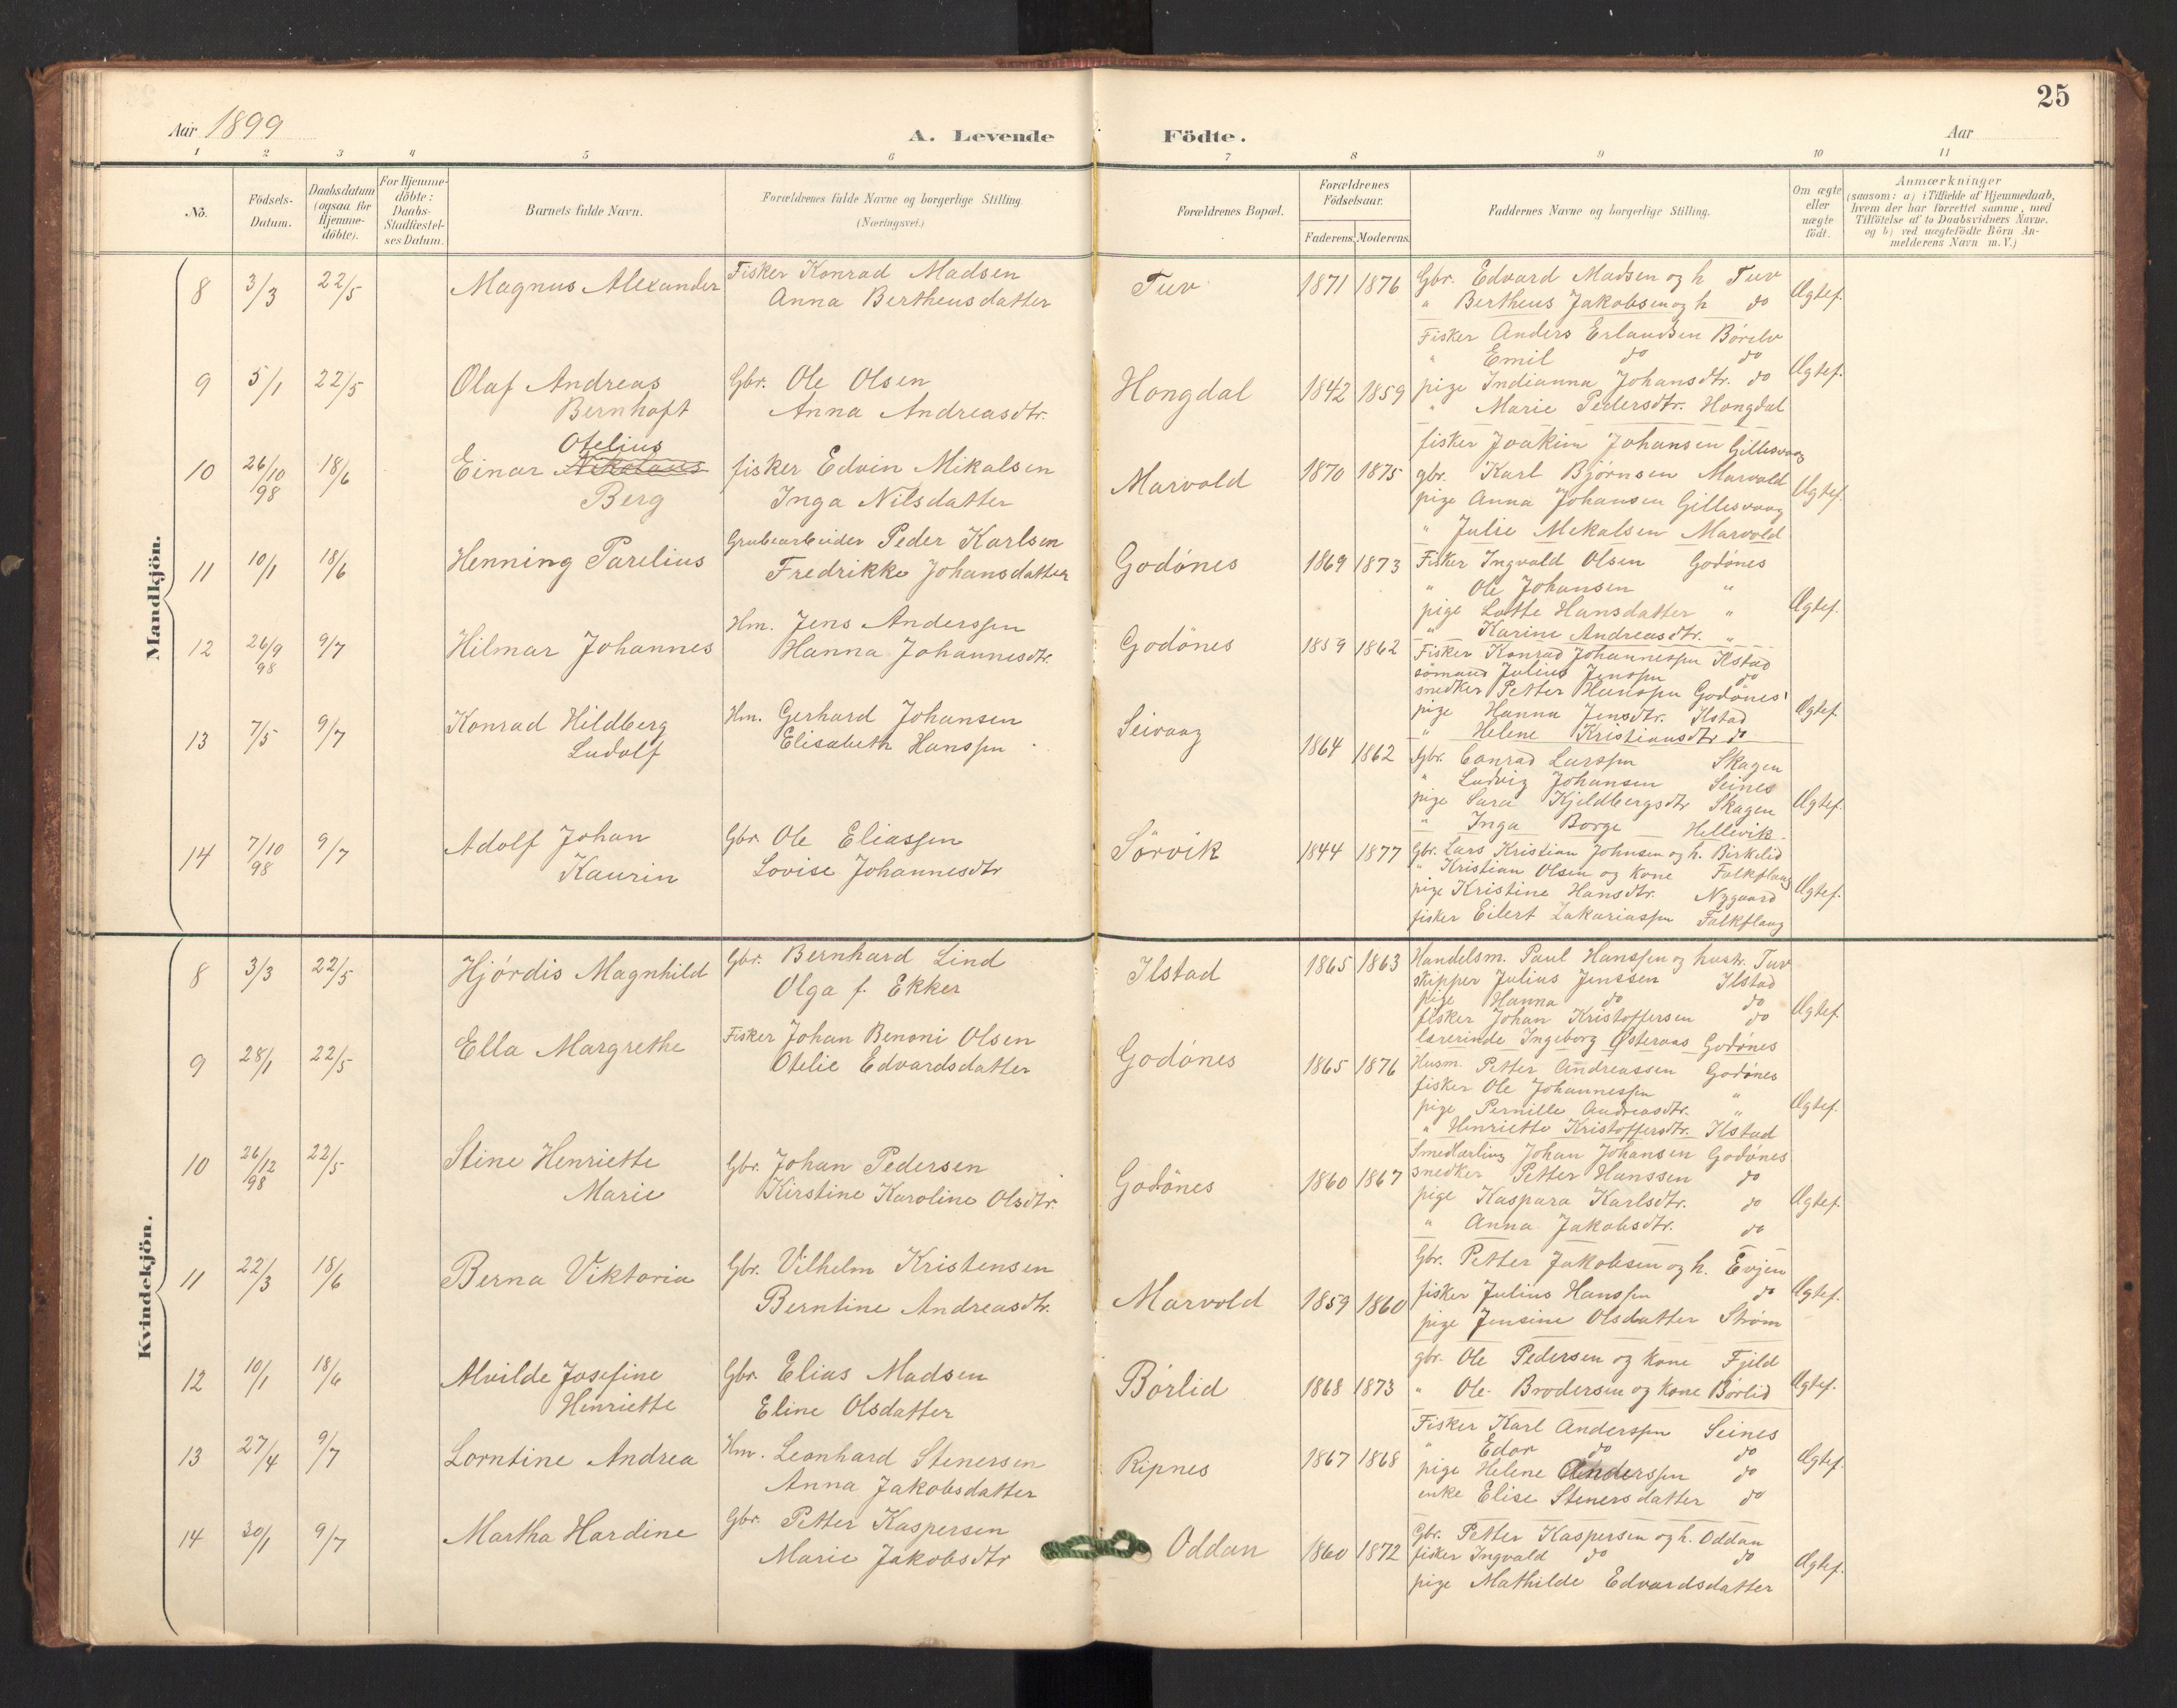 25
Aar 1899
A. Levende Födte.
Aar
1 2 3 4 5 6 7 8 9 10 11
No.
Födsels-
Datum.
Daabsdatum
(ogsaa for
Hjemme-
döbte).
For Hjemme-
döbte:
Daabs-
Stadfæstel-
ses Datum.
Barnets fulde Navn.
Forældrenes fulde Navne og borgerlige Stilling.
(Næringsvei.)
Forældrenes Bopæl.
Forældrenes
Fødselsaar.
Faderens. Moderens.
Faddernes Navne og borgerlige Stilling.
Om ægte
eller
uægte
födt.
Anmærkninger
(saasom: a) i Tilfælde af Hjemmedaab,
hvem der har forrettet samme, med
Tilföielse af to Daabsvidners Navne,
og b) ved uægtefödte Börn An-
melderens Navn m. V.)
Mandkjön.
8 3/3 22/5 Magnus Alexander
Fisker Konrad Madsen
Anna Bertheusdatter
Tuv 1871 1876
Gbr. Edvard Madsen og h Tuv
" Bertheus Jakobsen og h do
Ægtef.
9 5/1 22/5 Olaf Andreas
Bernhoft
Gbr. Ole Olsen
Anna Andreasdtr.
Hongdal 1842 1859
Fisker Anders Erlandsen Børelv
" Emil do do
pige Indianna Johansdtr. do
" Marie Pedersdtr. Hongdal
Ægtef.
10 26/10 98 18/6
Otelius
Einar Nikolaus
Berg
fisker Edvin Mikalsen
Inga Nilsdatter
Marvold 1870 1875
fisker Joakim Johansen Gillesvaag
gbr. Karl Bjørnsen Marvold
pige Anna Johansen Gillesvaag
" Julie Mikalsen Marvold
Ægtef.
11 10/1 18/6 Henning Parelius
Grubearbeider Peder Karlsen
Fredrikke Johansdatter
Godönes 1869 1873
Fisker Ingvald Olsen Godönes
" Ole Johansen "
pige Lotte Hansdatter "
" Karine Andreasdtr. "
Ægtef.
12 26/9 98 9/7 Hilmar Johannes
Hm. Jens Anderssen
Hanna Johannesdtr.
Godönes 1859 1862
Fisker Konrad Johannessen Ilstad
sömand Julius Jenssen do
snedker Petter Hanssen Godönes
pige Hanna Jensdtr. Ilstad
" Helene Kristiansdtr do
Ægtef.
13 7/5 9/7 Konrad Hildberg
Ludolf
Hm. Gerhard Johansen
Elisabeth Hanssen
Seivaag 1864 1862
Gbr. Conrad Larssen Skagen
" Ludvig Johansen Seines
pige Sara Kjeldbergsdtr Skagen
" Inga Borge Hellivik
Ægtef.
14 7/10 98 9/7 Adolf Johan
Kaurin
Gbr Ole Eliassen
Lovise Johannesdtr
Sörvik 1844 1877
Gbr. Lars Kristian Johnsen og h. Birkelid
" Kristian Olsen og kone Falkflaug
pige Kristine Hansdtr. Nygaard
fisker Eilert Zakariassen Falkflaug
Ægtef.
Kvindekjön.
8 3/3 22/5 Hjördis Magnhild
Gbr. Bernhard Lind
Olga f. Ekker
Ilstad 1865 1863
Handelsm. Paul Hanssen og hustr. Tuv
skipper Julius Jenssen Ilstad
pige Hanna do do
fisker Johan Kristoffersen do
lærerinde Ingeborg Østeraas Godönes
Ægtef.
9 28/1 22/5 Ella Margrethe
Fisker Johan Benoni Olsen
Otelie Edvardsdatter
Godönes 1865 1876
Husm. Petter Andreassen Godönes
fisker Ole Johannessen "
pige Pernille Andreasdtr. "
" Henriette Kristoffersdtr. Ilstad
Ægtef.
10 26/12 98 22/5 Stine Henriette
Marie
Gbr. Johan Pedersen
Kirstine Karoline Olsdtr.
Godönes 1860 1867
Smedlærling Johan Johansen Godönes
snedker Petter Hanssen do
pige Kaspara Karlsdtr. do
" Anna Jakobsdtr. do
Ægtef.
11 22/3 18/6 Berna Viktoria
Gbr. Vilhelm Kristensen
Berntine Andreasdtr.
Marvold 1859 1860
Gbr. Petter Jakobsen og h. Evjen
fisker Julius Hanssen do
pige Jensine Olsdatter Strøm
Ægtef.
12 10/1 18/6 Alvilde Josefine
Henriette
Gbr Elias Madsen
Eline Olsdatter
Börlid 1868 1873
gbr. Ole Pedersen og kone Fjeld
" Ole Brodersen og kone Börlid
Ægtef.
13 27/4 9/7 Lorntine Andrea
Hm. Leonhard Stenersen
Anna Jakobsdatter
Ripnes 1867 1868
Fisker Karl Anderssen Seines
" Edor do do
pige Helene Anderssen do
enke Elise Stenersdatter do
Ægtef.
14 30/1 9/7 Martha Hardine
Gbr. Petter Kaspersen
Marie Jakobsdtr
Oddan 1860 1872
Gbr. Petter Kaspersen og h. Oddan
fisker Ingvald do do
pige Mathilde Edvardsdatter
Ægtef.